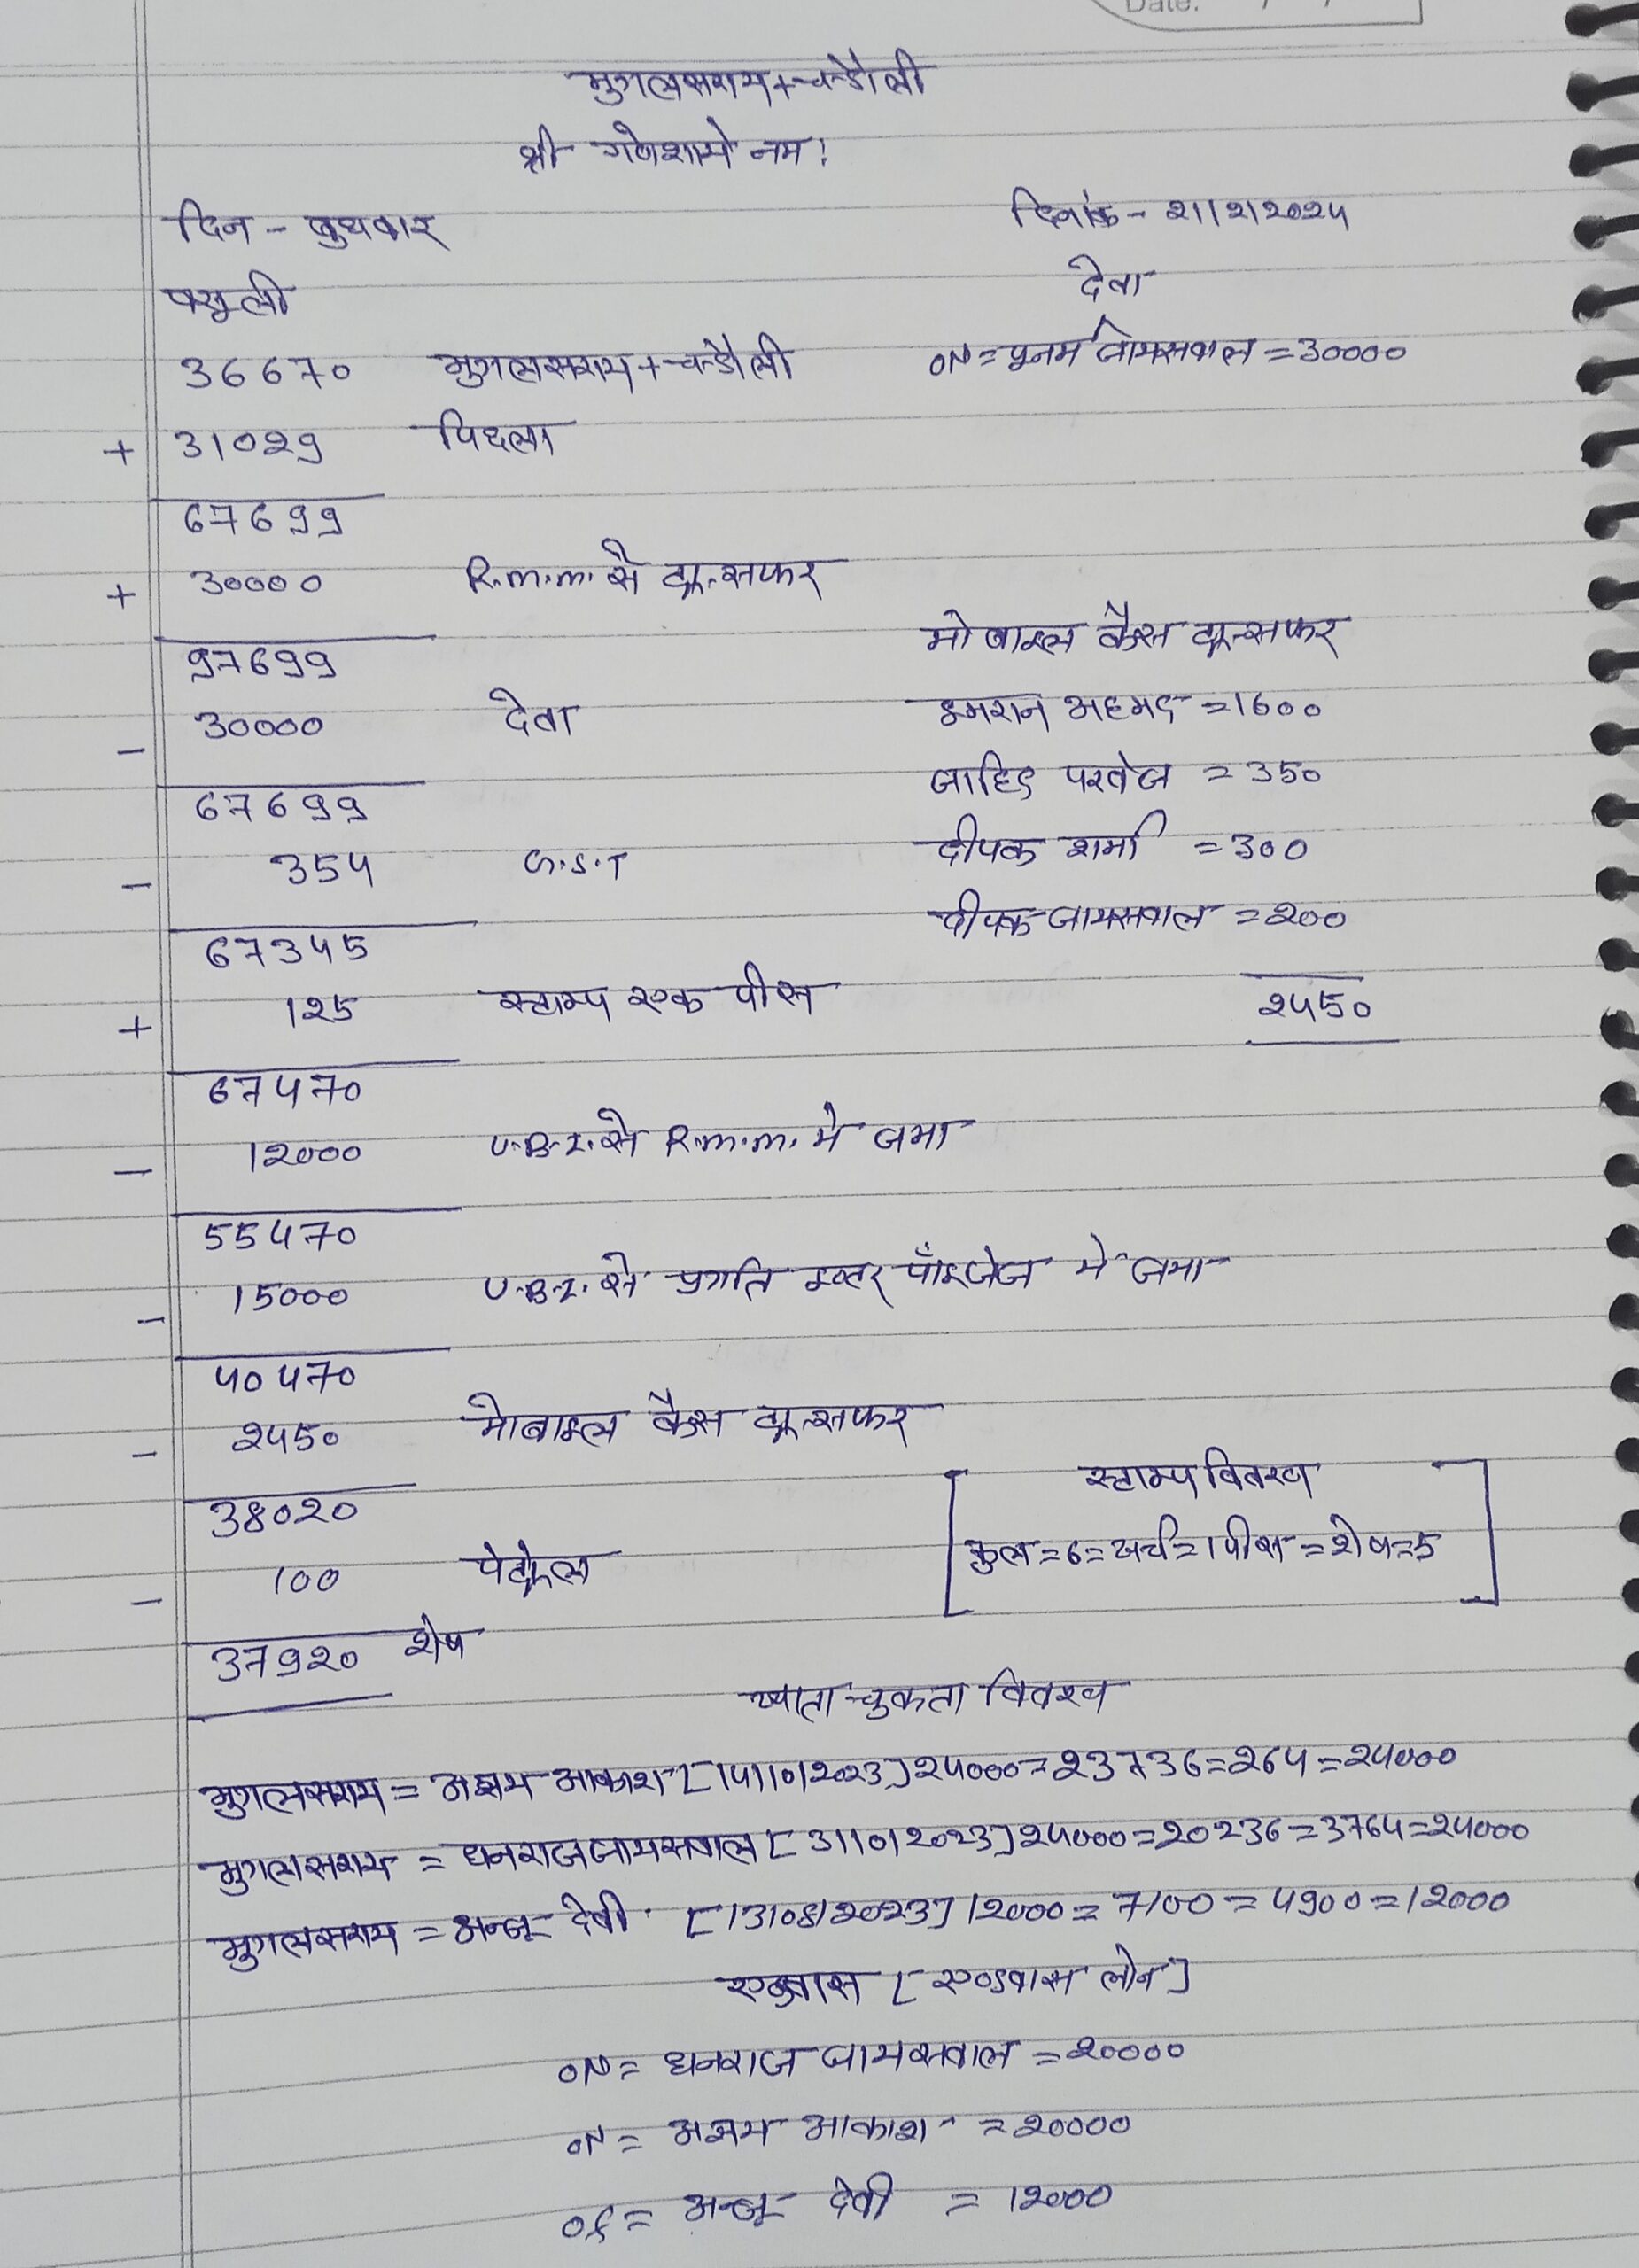 Date: / /
मुगलसराय+चन्डौली
श्री गणेशाये नम:
दिन - बुधवार दिनांक - 21/2/2024
वसूली देवा
36670 मुगलसराय+चन्डौली ON = पूनम जायसवाल = 30000
+ 31029 पिछला
67699
+ 30000 R.m.m. से ट्रान्सफर
97699 मोबाइल कैस ट्रान्सफर
- 30000 देवा इमरान अहमद = 1600
67699 जाहिद परवेज = 350
- 354 G.S.T दीपक शर्मा = 300
67345 दीपक जायसवाल = 200
+ 125 स्टाम्प एक पीस 2450
67470
- 12000 U.B.I. से R.m.m. मे जमा
55470
- 15000 U.B.I. से प्रगति इन्टर प्रॉइजेज मे जमा
40470
- 2450 मोबाइल कैस ट्रान्सफर
38020 स्टाम्प विवरण
- 100 पेट्रोल [कुल=6=खर्च=1पीस=शेष=5]
37920 शेष
खाता चुकता विवरण
मुगलसराय = अक्षय आकाश [14/10/2023] 24000=23736=264=24000
मुगलसराय = धनराज जायसवाल [3/10/2023] 24000=20236=3764=24000
मुगलसराय = अन्जू देवी [13/08/2023] 12000=7100=4900=12000
एडवास [एडवास लोन]
ON = धनराज जायसवाल = 20000
ON = अक्षय आकाश = 20000
of = अन्जू देवी = 12000